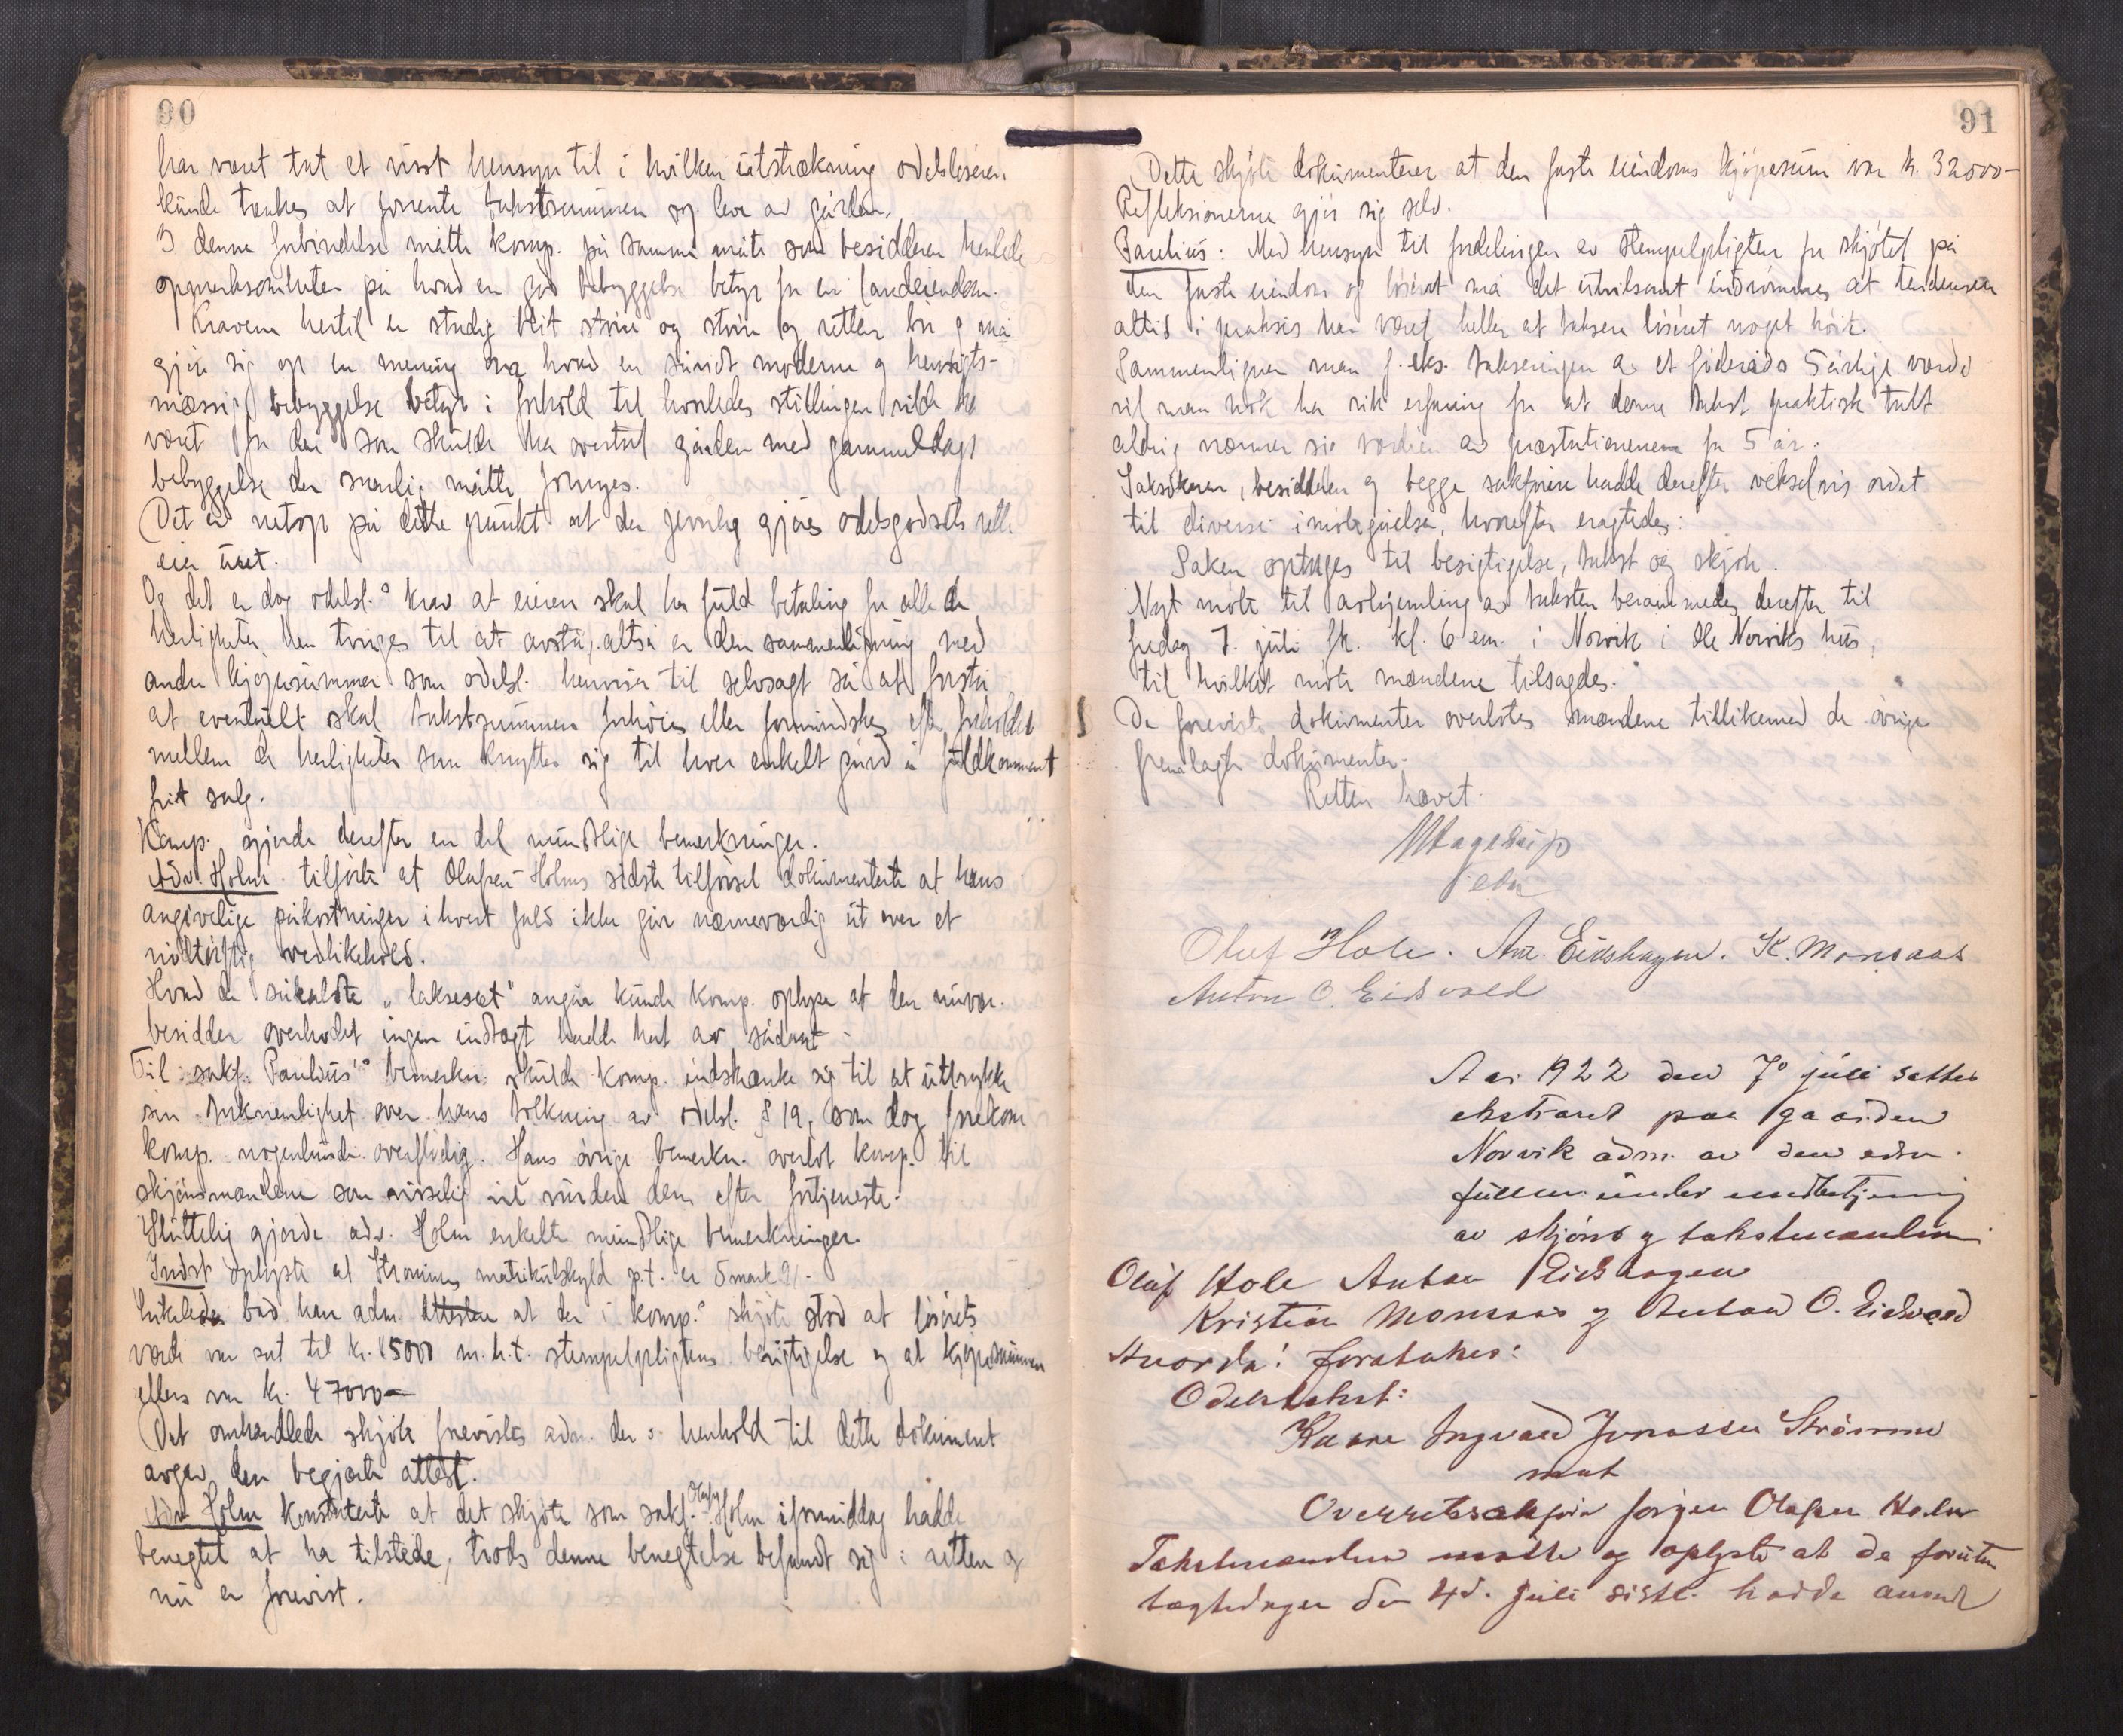 90
har været tat et visst hensyn til i hvilken utstrækning odelsløseren
kunde tænkes at forrente takstsummen og leve av gården.
I denne forbindelse måtte komp. på samme måte som besidderen henlede
opmerksomheten på hvad en god bebyggelse betyr for en landeiendom.
Kravene hertil er stadig blit större og större og retten bör og må
gjöre sig op en mening om hvad en sundt moderne og hensigts-
mæssig bebyggelse betyr i forhold til hvorledes stillingen vilde ha
været for den som skulde ha overtat gården med gammeldags
bebyggelse der snarlig måtte fornyes.
Det er netop på dette punkt at der jevnlig gjöres odelsgodsets rette
eier uret.
Og det er dog odelsl.s krav at eieren skal ha fuld betaling for alle de
herligheter han tvinges til at avstå, altså er den sammenligning med
andre kjöpesummer som odelsl. henviser til selvsagt så at forstå
at eventuelt skal takstsummen forhöies eller formindskes efter forholdet
mellem de herligheter som knytter sig til hver enkelt gård i fuldkomment
frit salg.
Komp. gjorde derefter en del mundtlige bemerkninger.
Adv. Holm tilförte at Olafsen-Holms sidste tilförsel dokumenterte at hans
angivelige påkostninger i hvert fald ikke går nævneværdig ut over et
nödtörftig vedlikehold.
Hvad de såkaldte "laksesæt" angår kunde komp. oplyse at den nuvær.
besidder overhodet ingen indtægt hadde hat av sådant.
Til sakf. Paulius's bemerkn. skulde komp. indskrænke sig til at uttrykke
sin taknemlighet over hans tolkning av odelsl. § 19, som dog forekom
komp. nogenlunde overflödig. Hans övrige bemerkn. overlot komp. til
skjönsmændene som visselig vil vurdere dem efter fortjeneste.
Sluttelig gjorde adv. Holm enkelte mundtlige bemerkninger.
Indst oplyste at Strömmes matrikulskyld p.t. er 5 mark 91.
Likeledes bad han adm. attestere at der i komp.s skjöte stod at lösörets
værdi var sat til kr. 15000 m.h.t. stempelpligtens berigtigelse og at kjöpesummen
ellers var kr. 47000-
Det omhandlede skjöte forevistes adm. der i henhold til dette dokument
avgav den begjærte attest.
Adv. Holm konstaterte at det skjöte som sakf. Olafsen Holm iformiddag hadde
benegtet at ha tilstede, trods denne benegtelse befandt sig i retten og
nu er forevist.
91
Dette skjöte dokumenterer at den faste eiendoms kjöpesum var kr. 32000-
Refleksionerne gjör sig selv.
Paulius: Med hensyn til fordelingen av stempelpligten for skjötet på
den faste eiendom og lösöret må det utvilsomt indrömmes at tendensen
altid i praksis har været heller at taksere lösöret noget höit.
Sammenligner man f. eks. takseringen av et föderåds 5 årlige værdi
vil man nok ha rik erfaring for at denne takst praktisk talt
aldrig nærmer sig værdien av præstationerne for 5 år.
Saksökeren, besidderen og begge sakförere hadde derefter vekselvis ordet
til diverse imötegåelser, hvorefter eragtedes:
Saken optages til besigtigelse, takst og skjön.
Nyt möte til avhjemling av taksten berammedes derefter til
fredag 7. juli fk. kl. 6 em. i Norvik i Ole Norviks hus,
til hvilket möte mændene tilsagdes.
De foreviste dokumenter overlotes mændene tillikemed de övrige
fremlagte dokumenter.
Retten hævet.
MHagerup
edv
Oluf Hole. Ant. Eidshagen. K. Monsaas
Anton O. Eidsvald
Aar 1922 den 7de juli sattes
ekstraret paa gaarden
Norvik adm. av den edsv.
fuldm. under medbetjening
av skjöns og takstmændene
Oluf Hole Anton Eidshagen
Kristian Monsaas og Anton O. Eidsvald
Hvorda! foretakes:
Odelstakst:
Kaare Ingvald Jonassen Strömme
mot
Overretssakförer Jörgen Olafsen Holm
Takstmændene mötte og oplyste at de foruten
tægtedagen den 4d. juli sistl. hadde anvendt